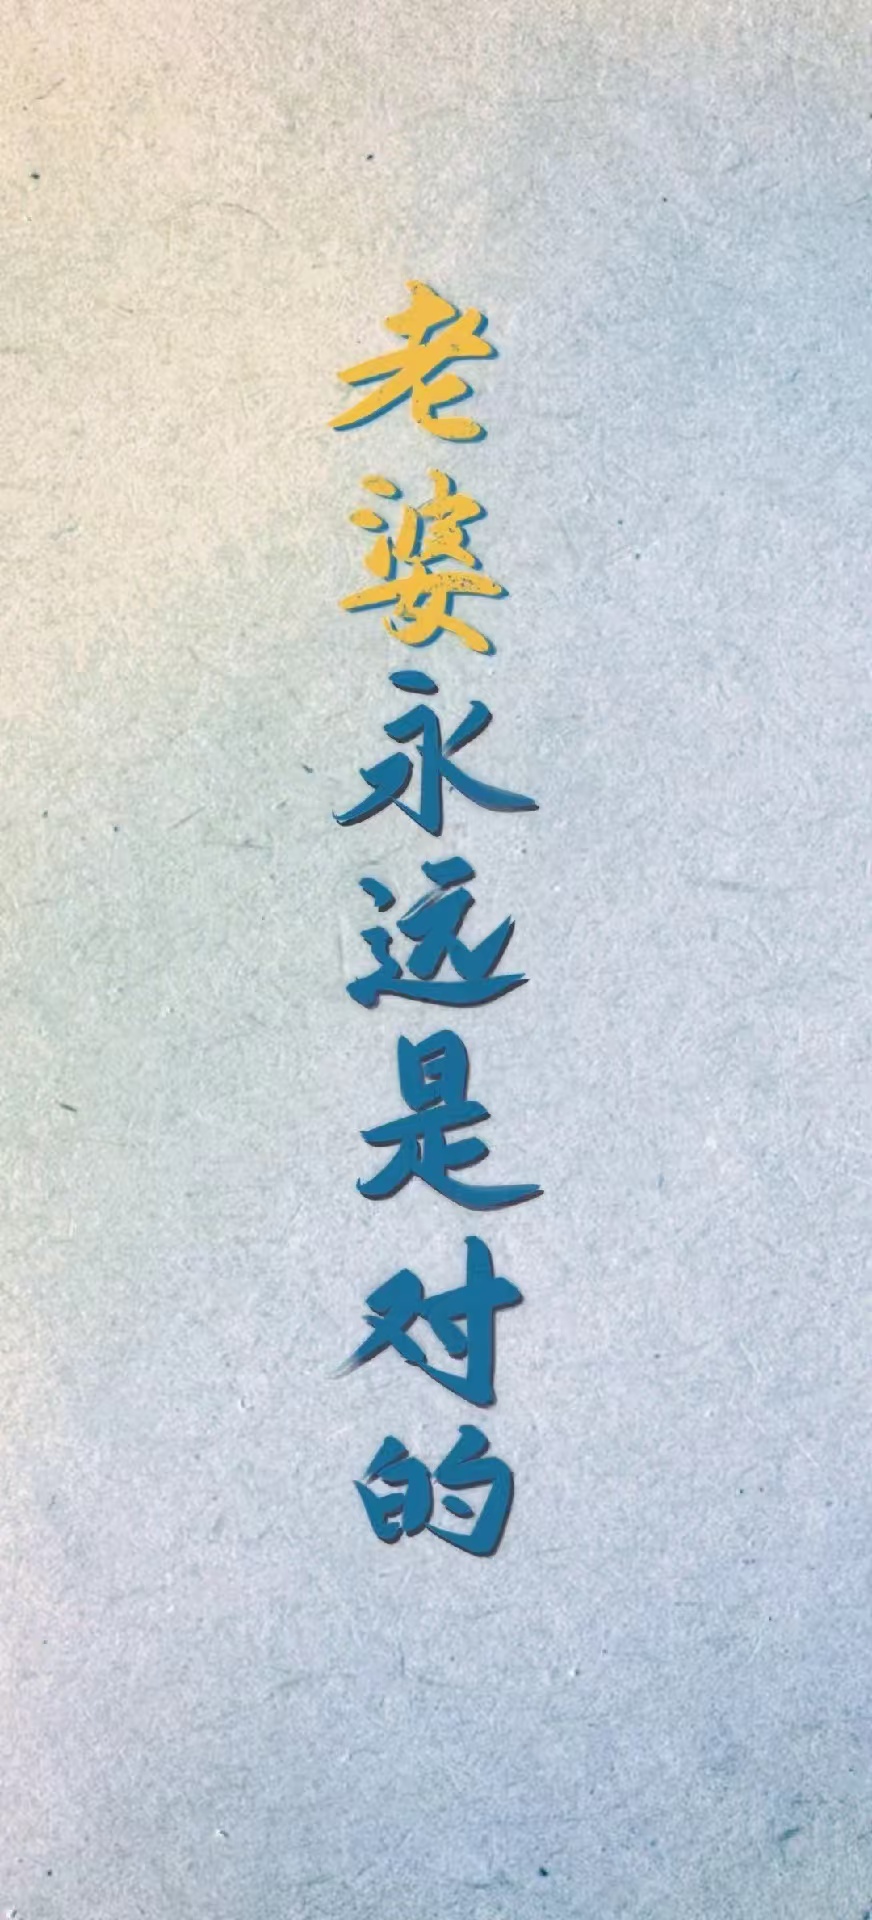 老婆永远是对的